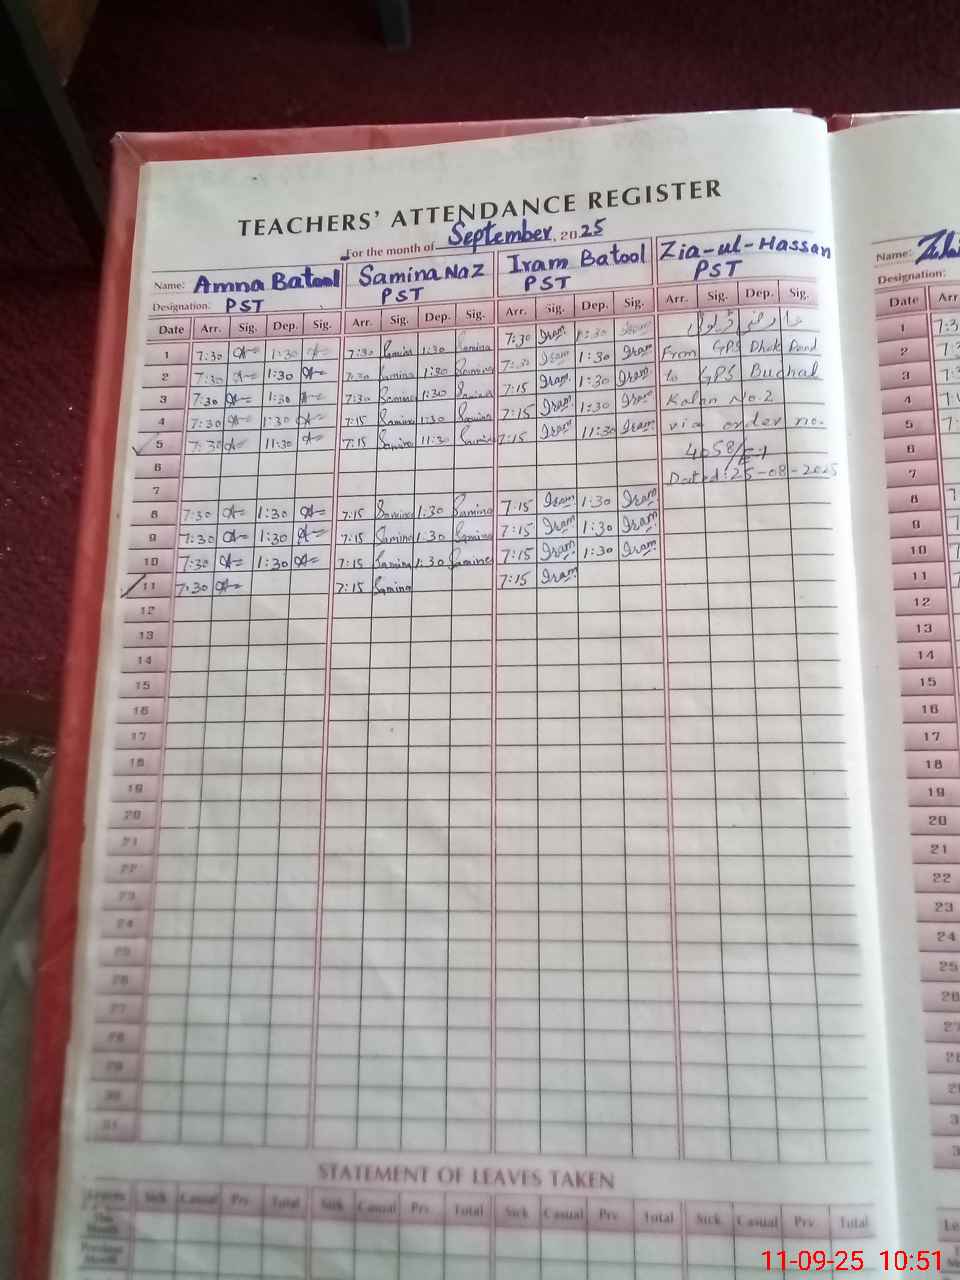 TEACHERS' ATTENDANCE REGISTER
For the month of September, 2025
Name: Amna Batool Samina Naz Iram Batool Zia-ul-Hassan Name:
Designation: PST PST PST PST Designation:
Date Arr. Sig. Dep. Sig. Arr. Sig. Dep. Sig. Arr. Sig. Dep. Sig. Arr. Sig. Dep. Sig. Date Arr
1 7:30 1:30 7:30 Samina 1:30 Samina 7:30 Iram 1:30 Iram 1
2 7:30 1:30 7:30 Samina 1:30 Samina 7:30 Iram 1:30 Iram From GPS Dhok 2
3 7:30 1:30 7:30 Samina 1:30 Samina 7:15 Iram 1:30 Iram to GPS Buchal 3
4 7:30 1:30 7:15 Samina 1:30 Samina 7:15 Iram 1:30 Iram Kalan No.2 4
5 7:30 11:30 7:15 Samina 11:30 Samina 7:15 Iram 11:30 Iram via order no. 5
6 4058/E-1 6
7 Dated: 25-08-2025 7
8 7:30 1:30 7:15 Samina 1:30 Samina 7:15 Iram 1:30 Iram 8
9 7:30 1:30 7:15 Samina 1:30 Samina 7:15 Iram 1:30 Iram 9
10 7:30 1:30 7:15 Samina 1:30 Samina 7:15 Iram 1:30 Iram 10
11 7:30 7:15 Samina 7:15 Iram 11
12 12
13 13
14 14
15 15
16 16
17 17
18 18
19 19
20 20
21 21
22 22
23 23
24 24
25 25
26 26
27 27
28 28
29 2
30 3
31 3
STATEMENT OF LEAVES TAKEN
Leaves Sick Casual Prv. Total Sick Casual Prv. Total Sick Casual Prv. Total Sick Casual Prv. Total
This Month
Previous Month
11-09-25 10:51